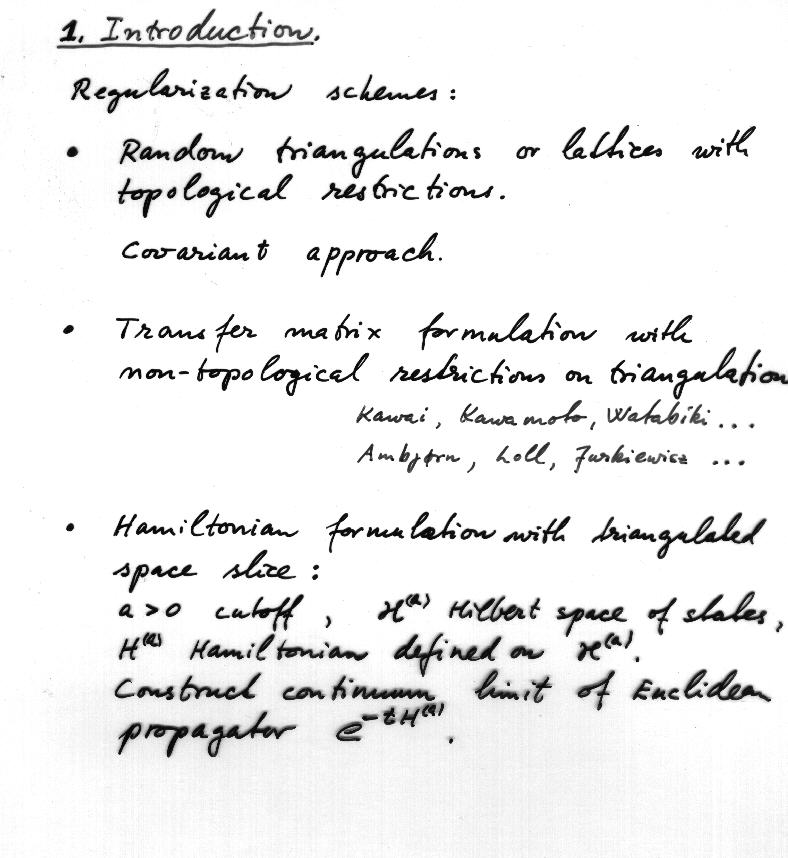 1. Introduction.
Regularization schemes:
• Random triangulations or lattices with
topological restrictions.
Covariant approach.
• Transfer matrix formulation with
non-topological restrictions on triangulation
Kawai, Kawamoto, Watabiki ...
Ambjørn, Loll, Jurkiewicz ...
• Hamiltonian formulation with triangulated
space slice:
a > 0 cutoff, ℋ⁽ᵃ⁾ Hilbert space of states,
H⁽ᵃ⁾ Hamiltonian defined on ℋ⁽ᵃ⁾.
Construct continuum limit of Euclidean
propagator e^{-tH⁽ᵃ⁾}.